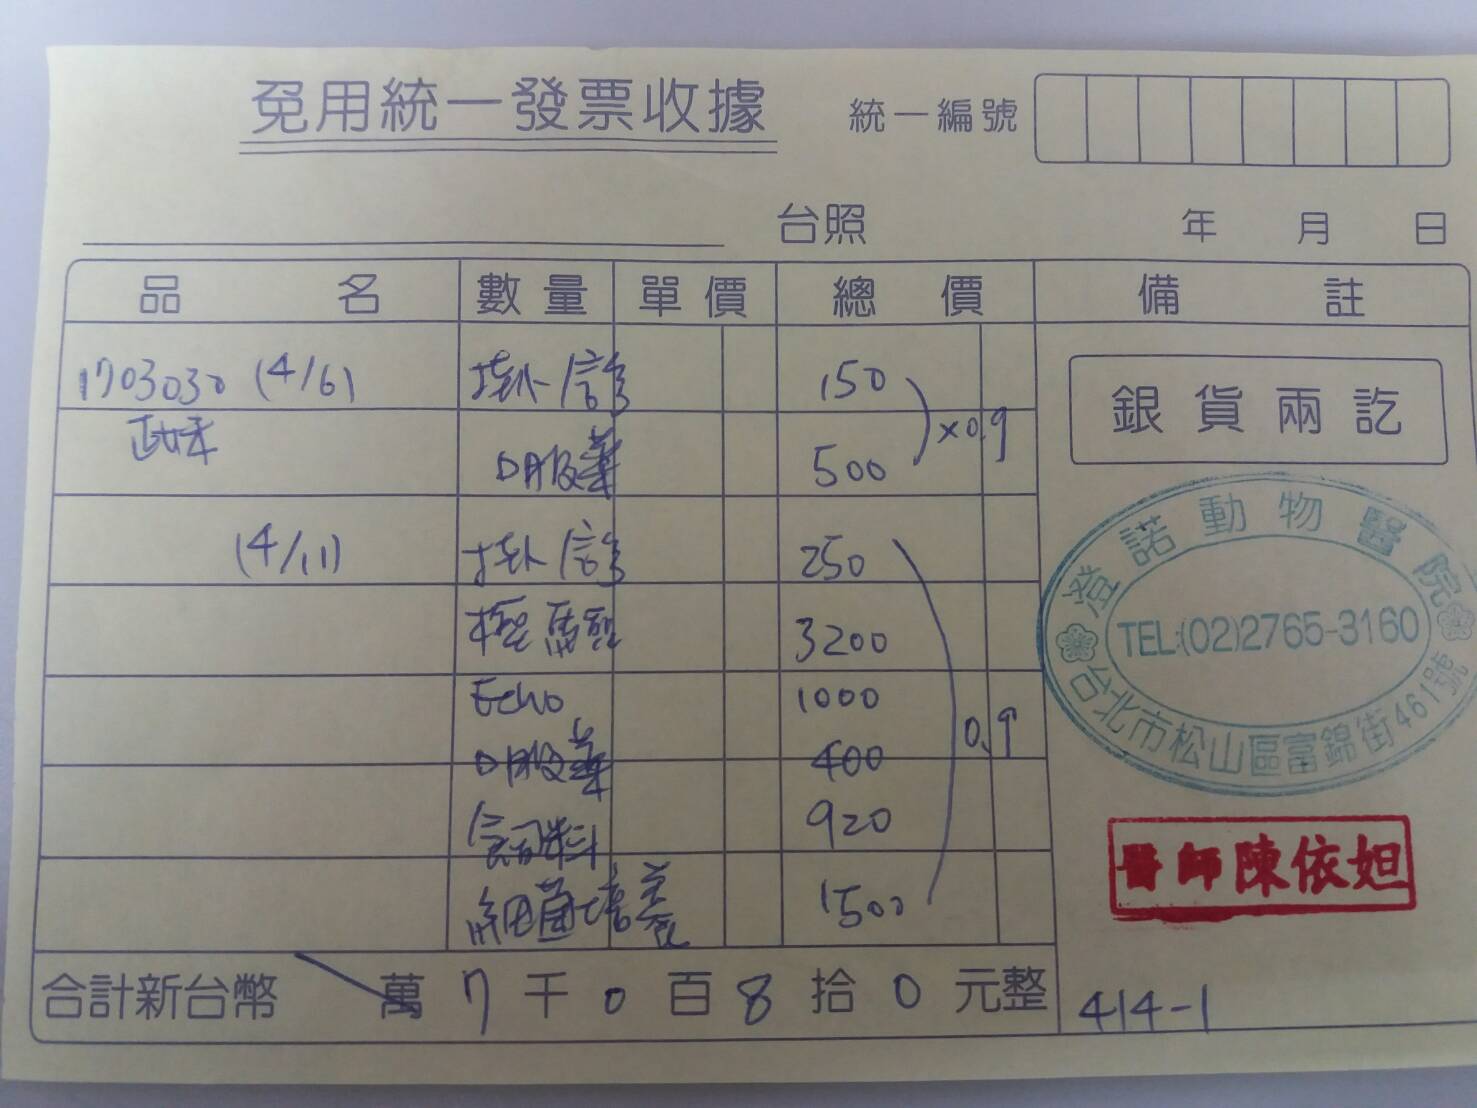 免用統一發票收據 統一編號
台照 年 月 日
品 名 數量 單價 總 價 備 註
1703030 (4/6) 掛/診 150
口服藥 500 ×0.9
銀貨兩訖
(4/11) 掛/診 250
3200
Echo 1000
口服藥 400 0.9
飼料 920
細菌培養 1500
澄諾動物醫院
TEL:(02)2765-3160
台北市松山區富錦街461號
醫師陳依妲
合計新台幣 萬 7 千 0 百 8 拾 0 元整
414-1